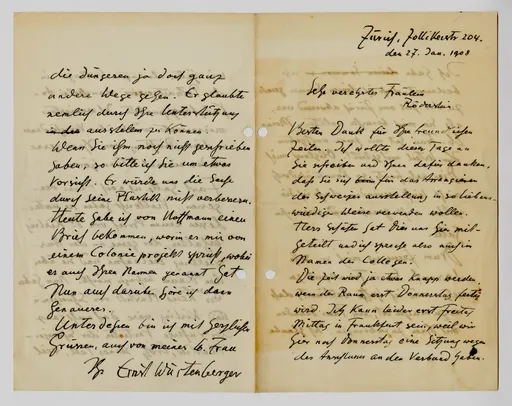 Zürich, Zollikerstr 204.
den 27. Jan. 1908
Sehr verehrtes Fräulein
Röderstein.
Besten Dank für Ihre freundlichen
Zeilen. Ich wollte diese Tage an
Sie schreiben und Ihnen dafür danken,
daß Sie sich beim für das Arrangieren
der Schweizer ausstellung in so liebens-
würdige Weise verwenden wollen.
Herr hat hier uns Ihre mit-
geteilt und ich spreche also auch im
Namen der Collegen.
Die Zeit wird ja etwas knapp werden
wenn der Raum erst Donnerstag fertig
wird. Ich kann leider erst Freitag
Mittag in Frankfurt sein, weil wir
hier noch Donnerstag eine Sitzung wegen
des Anschluss an den Verband haben.
die Jüngeren ja doch ganz
andere Wege gehen. Er glaubte
nemlich durch Ihre Unterstützung
in der ausstellen zu können.
Wenn Sie ihm noch nicht geschrieben
haben, so bitte ich Sie um etwas
Vorsicht. Er würde uns die Sache
durch seine Plastik nicht verbessern.
Heute habe ich von Hoffmann einen
Brief bekommen, worin er mir von
einem Colonie projekt spricht, wobei
er auch Ihren Namen genannt hat
Nun auch darüber höre ich dann
Genaueres.
Unterdessen bin ich mit herzlichen
Grüssen, auch von meiner lb. Frau
Ihr Ernst Würtenberger